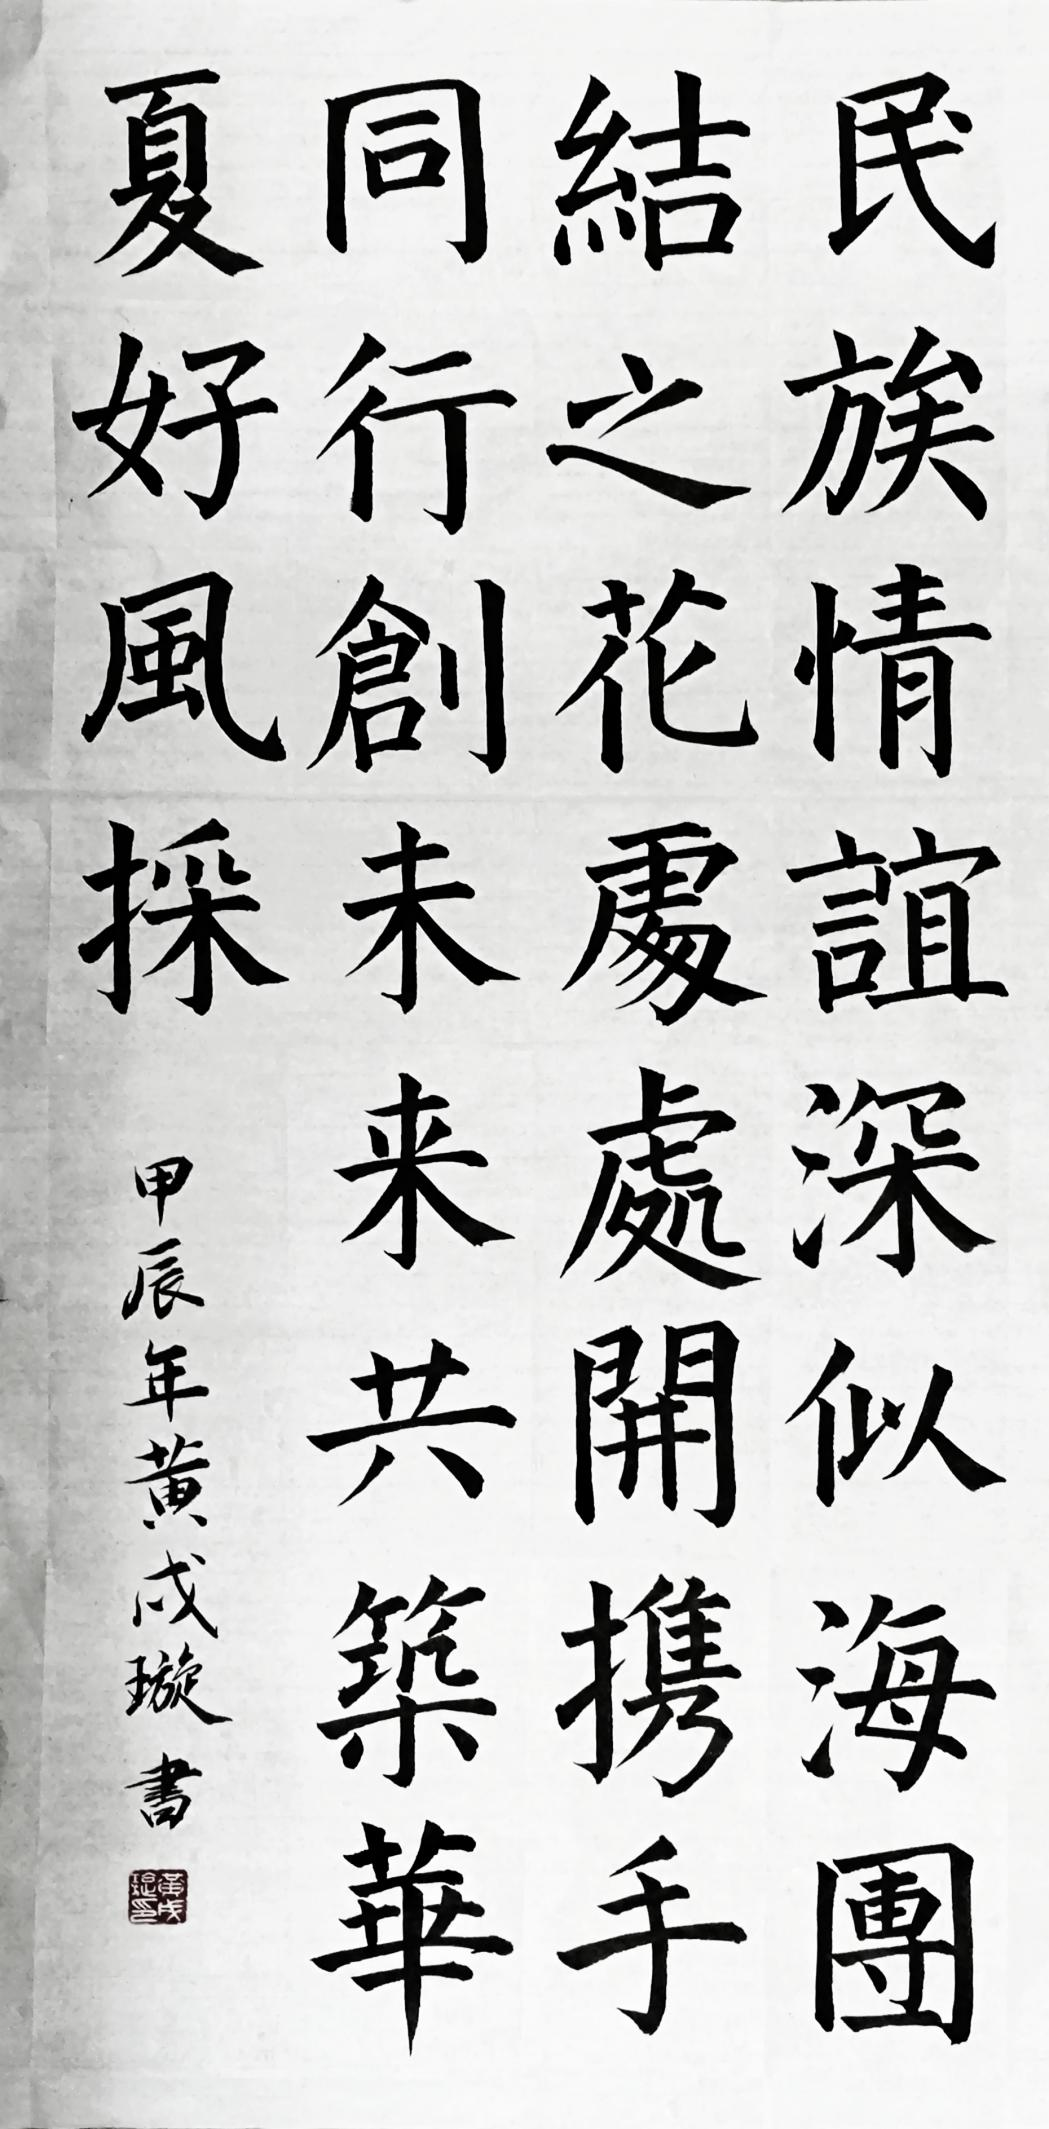 民族情誼深似海團
結之花處處開携手
同行創未来共築華
夏好風採
甲辰年黄成璇書